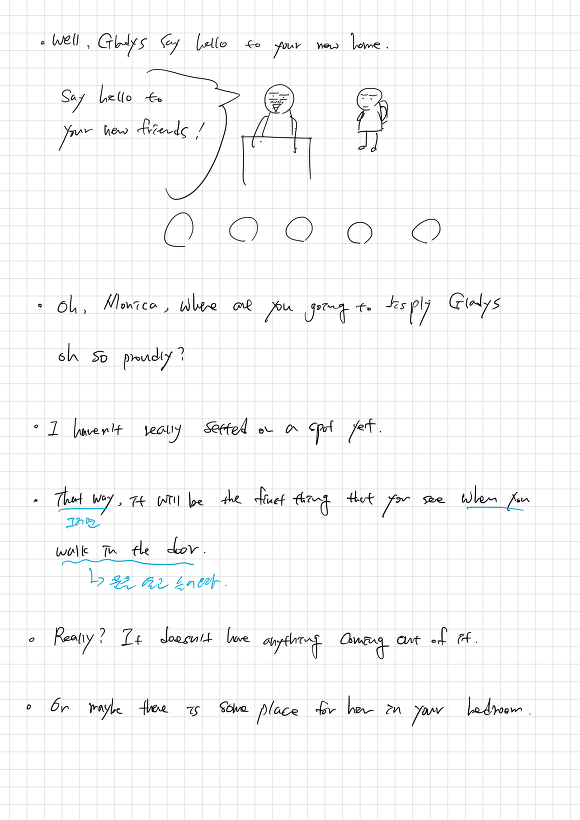 • Well, Gladys say hello to your new home.
Say hello to
your new friends!
• Oh, Monica, where are you going to disply Gladys
oh so proudly?
• I haven't really setted on a spot yet.
• That way, it will be the first thing that you see when you
그러면
walk in the door.
↳ 문을 열고 들어오다.
• Really? It doesn't have anything coming out of it.
• Or maybe there is some place for her in your bedroom.